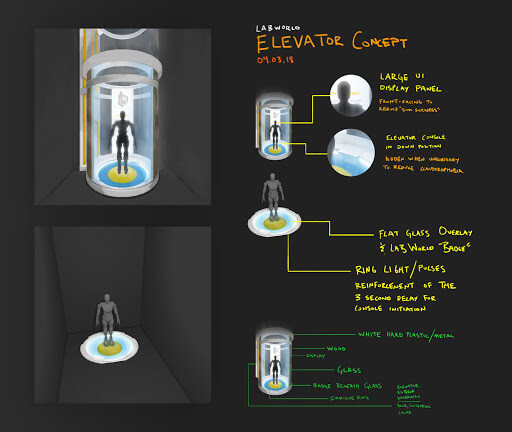 LAB WORLD
ELEVATOR CONCEPT
04.03.18
LARGE UI
DISPLAY PANEL
FRONT-FACING TO
REDUCE "SIM SICKNESS"
ELEVATOR CONSOLE
IN DOWN POSITION
HIDDEN WHEN UNNECESSARY
TO REDUCE CLAUSTROPHOBIA
FLAT GLASS OVERLAY
& LAB WORLD "BADGE"
RING LIGHT/PULSES
REINFORCEMENT OF THE
3 SECOND DELAY FOR
CONSOLE INITIATION
WHITE HARD PLASTIC/METAL
WOOD
DISPLAY
GLASS
BADGE BENEATH GLASS
ELEVATOR
RING